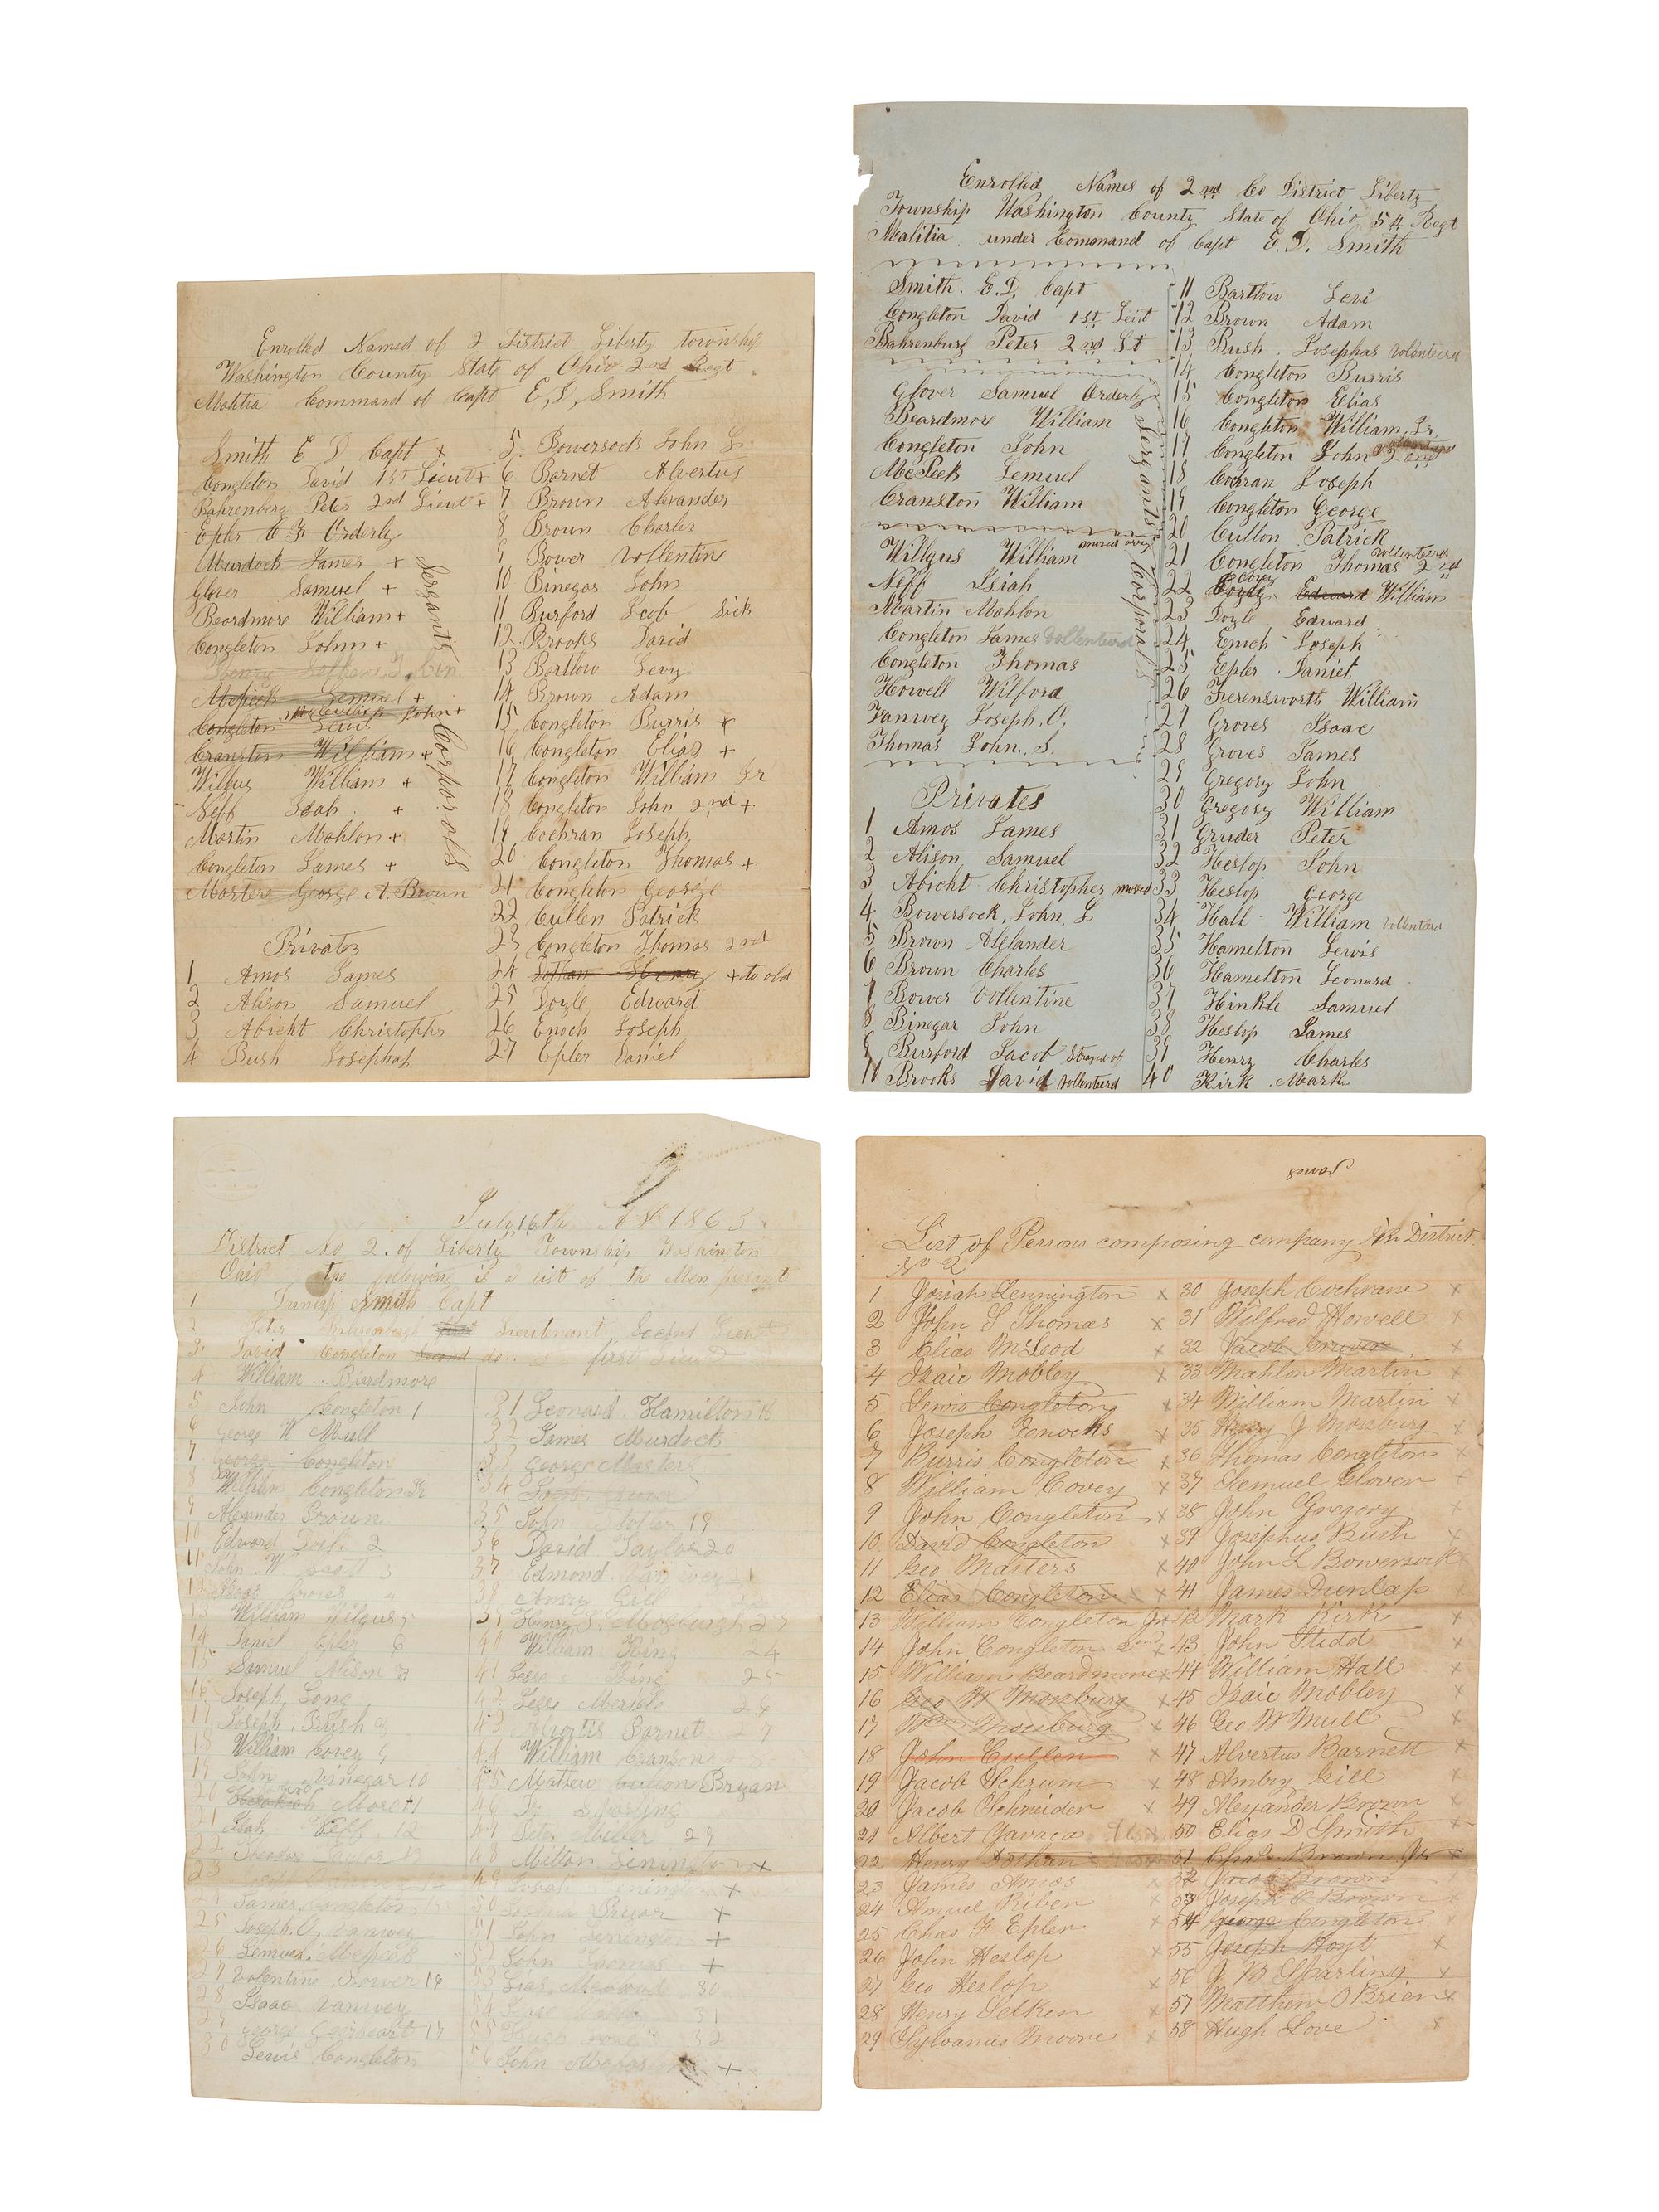 Enrolled Names of 2 District Liberty township
Washington County State of Ohio 2nd Regt
Malitia Command of Capt E, D, Smith
Smith E D Capt +
Congleton David 1st Lieut +
Bahrenberg Peter 2nd Lieut +
Epler C F Orderly
Murdock James +
Glover Samuel +
Beardmore William +
Congleton John +
Mcpeek Lemuel +
Congleton John +
Cranston William +
Wilgus William +
Neff Isah +
Martin Mahlon +
Congleton James +
Masters George. A. Brown
Sergants
Corporals
Privates
1 Amos James
2 Alison Samuel
3 Abicht Christopher
4 Bush Josephas
5. Bowersock John L
6 Barnet Alvertus
7 Brown Alexander
8 Brown Charles
9 Bower Vollentine
10 Binegar John
11 Burford Jcob Sick
12 Brooks David
13 Bartlow Levy
14 Brown Adam
15 Congleton Burris +
16 Congleton Elias +
17 Congleton William Jr
18 Congleton John 2nd +
19 Cochran Joseph
20 Congleton Thomas +
21 Congleton George
22 Cullen Patrick
23 Congleton Thomas 2nd
24 Henry + to old
25 Doyle Edward
26 Enoch Joseph
27 Epler Daniel
Enrolled Names of 2nd Co District Liberty
Township Washington County State of Ohio 54 Regt
Malitia under Command of Capt E. D. Smith
Smith. E. D. Capt
Congleton David 1st Leut
Bahrenburg Peter 2nd Lt
Glover Samuel Orderly
Beardmore William
Congleton John
McPeek Lemuel
Cranston William
Sergants
Willgus William moved away
Neff Isiah
Martin Mahlon
Congleton James Vollenteerd
Congleton Thomas
Howell Wilford
Vanwey Joseph. O.
Thomas John. S.
Corporals
Privates
1 Amos James
2 Alison Samuel
3 Abicht Christopher moved
4 Bowersock, John L
5 Brown Alexander
6 Brown Charles
7 Bower Vollentine
8 Binegar John
9 Burford Jacob
10 Brooks David vollenteerd
11 Bartlow Levi
12 Brown Adam
13 Bush. Josephas Volenteerd
14 Congleton Burris
15 Congleton Elias
16 Congleton William, Jr,
17 Congleton John 2nd
18 Cochran Joseph
19 Congleton George
20 Cullon Patrick
21 Congleton Thomas 2nd vollenteerd
22 Covey Edward William
23 Doyle Edward
24 Enoch Joseph
25 Epler Daniel
26 Ferensworth William
27 Groves Isaac
28 Groves James
29 Gregory John
30 Gregory William
31 Gruder Peter
32 Heslop John
33 Heslop George
34 Hall William Vollenteerd
35 Hamelton Lewis
36 Hamelton Leonard
37 Hinkle Samuel
38 Heslop James
39 Henry Charles
40 Kirk Mark
July 16th AD 1863
District No 2. of Liberty Township Washington
Ohio the following is a list of the Men present
1 Dunlap Smith Capt
2 Peter Bahrenburgh Lieutenant, Second Lieut
3. David Congleton Second do.. first Lieut
4 William .. Bierdmore
5 John Congleton 1
6 George W Mull
7 George Congleton
8 William Congleton Jr
9 Alexander Brown
10 Edward 2
11 John. W 3
12 4
13 William Wilgus 5
14 Daniel Epler 6
15 Samuel Alison 7
16 Joseph Long
17 Joseph. Bush 8
18 William Covey 9
19 John Vinegar 10
20 11
21 Isah Neff 12
22
23
24 James Congleton 15
25 Joseph. O. Vanwey
26 Lemuel. Mcpeek
27 Volentine Bower 16
28 Isaac. Vanwey
29 George 17
30 Lewis Congleton
31 Leonard Hamilton 18
32 James Murdock
33 George Masters
34
35 John 19
36 David Taylor 20
37 Edmond Vanwey 21
38 Amry Gill 22
39 Henry J. Mozburgh 23
40 William King 24
41 King 25
42 26
43 Alvertis Barnet 27
44 William Cranson 28
45 Mathew Bryan
46 Sparling
47 Peter Miller 29
48 Milton Lenington +
49 +
50 +
51 John Lenington +
52 John Thomas +
53 30
54 31
55 32
56 John +
James
List of Persons composing company in District
No 2
1 Josiah Lennington x
2 John S Thomas x
3 Elias McLeod x
4 Isaic Mobley x
5 Lewis Congleton x
6 Joseph Enocks x
7 Burris Congleton x
8 William Covey x
9 John Congleton x
10 David Congleton x
11 Geo Masters x
12 Elias Congleton x
13 William Congleton Jr x
14 John Congleton 2nd x
15 William Beardmore x
16 Geo W Mosburg x
17 Wm Mosburg x
18 John Cullen x
19 Jacob Schrum x
20 Jacob Schneider x
21 Albert
22 Henry Dothan
23 James Amos
24 Amuel Riben
25 Chas F Epler
26 John Heslop x
27 Geo Heslop x
28 Henry Selken x
29 Sylvanus Moore x
30 Joseph Cochrane x
31 Wilfred Howell x
32 Jacob x
33 Mahlon Martin x
34 William Martin x
35 Henry J Mosburg x
36 Thomas Congleton x
37 Samuel Glover x
38 John Gregory x
39 Josephus Bush x
40 John L Bowersock x
41 James Dunlap x
42 Mark Kirk x
43 John Stidd x
44 William Hall x
45 Isaic Mobley x
46 Geo W Mull x
47 Alvertus Barnett x
48 Ambry Gill x
49 Alexander Brown x
50 Elias D Smith x
51 Chas Brown Jr x
52 Jacob Brown x
53 Joseph C Brown x
54 George Congleton x
55 Joseph Hoyt x
56 J B Sparling x
57 Matthew O Brien x
58 Hugh Love x